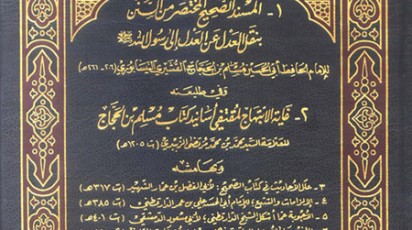 ١- المسند الصحيح المختصر من السنن
بنقل العدل عن العدل إلى رسول الله ﷺ
للإمام الحافظ أبي الحسين مسلم بن الحجاج القشيري النيسابوري (٢٠٦-٢٦١هـ)
وفي طليعته
٢- غاية الابتهاج لمقتفي أسانيد كتاب مسلم بن الحجاج
للعلامة السيد محمد بن محمد مرتضى الزبيدي (ت ١٢٠٥هـ)
وبهامشه
٣- علل أحاديث في كتاب الصحيح: لأبي الفضل بن عمار الشهيد (ت ٣١٧هـ)
٤- الإلزامات والتتبع: للإمام أبي الحسن علي بن عمر الدارقطني (ت ٣٨٥هـ)
٥- الأجوبة عما أشكل الشيخ الدارقطني: لأبي مسعود الدمشقي (ت ٤٠١هـ)